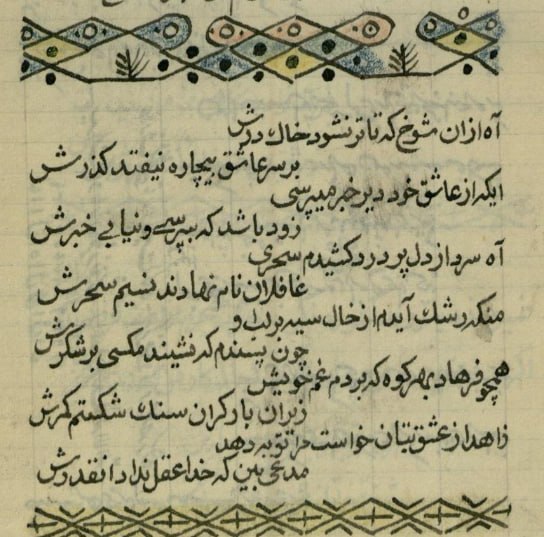 آه ازان شوخ که تا تر نشود خاك درش
بر سر عاشق بیچاره نیفتد گذرش
ایکه از عاشق خود دیر خبر میپرسی
زود باشد که بپرسی و نیابی خبرش
آه سرد از دل پر درد کشیدم سحری
غافلان نام نهادند نسیم سحرش
منکه رشك آیدم از خال سیه بر لب او
چون پسندم که نشیند مکسی بر شکرش
همچو فرهاد بهر کوه که بردم غم خویش
زیران بار کران سنك شکستم کمرش
زاهد از عشق بتان خواست مرا توبه دهد
مدعی بین که خدا عقل نداد انقدرش